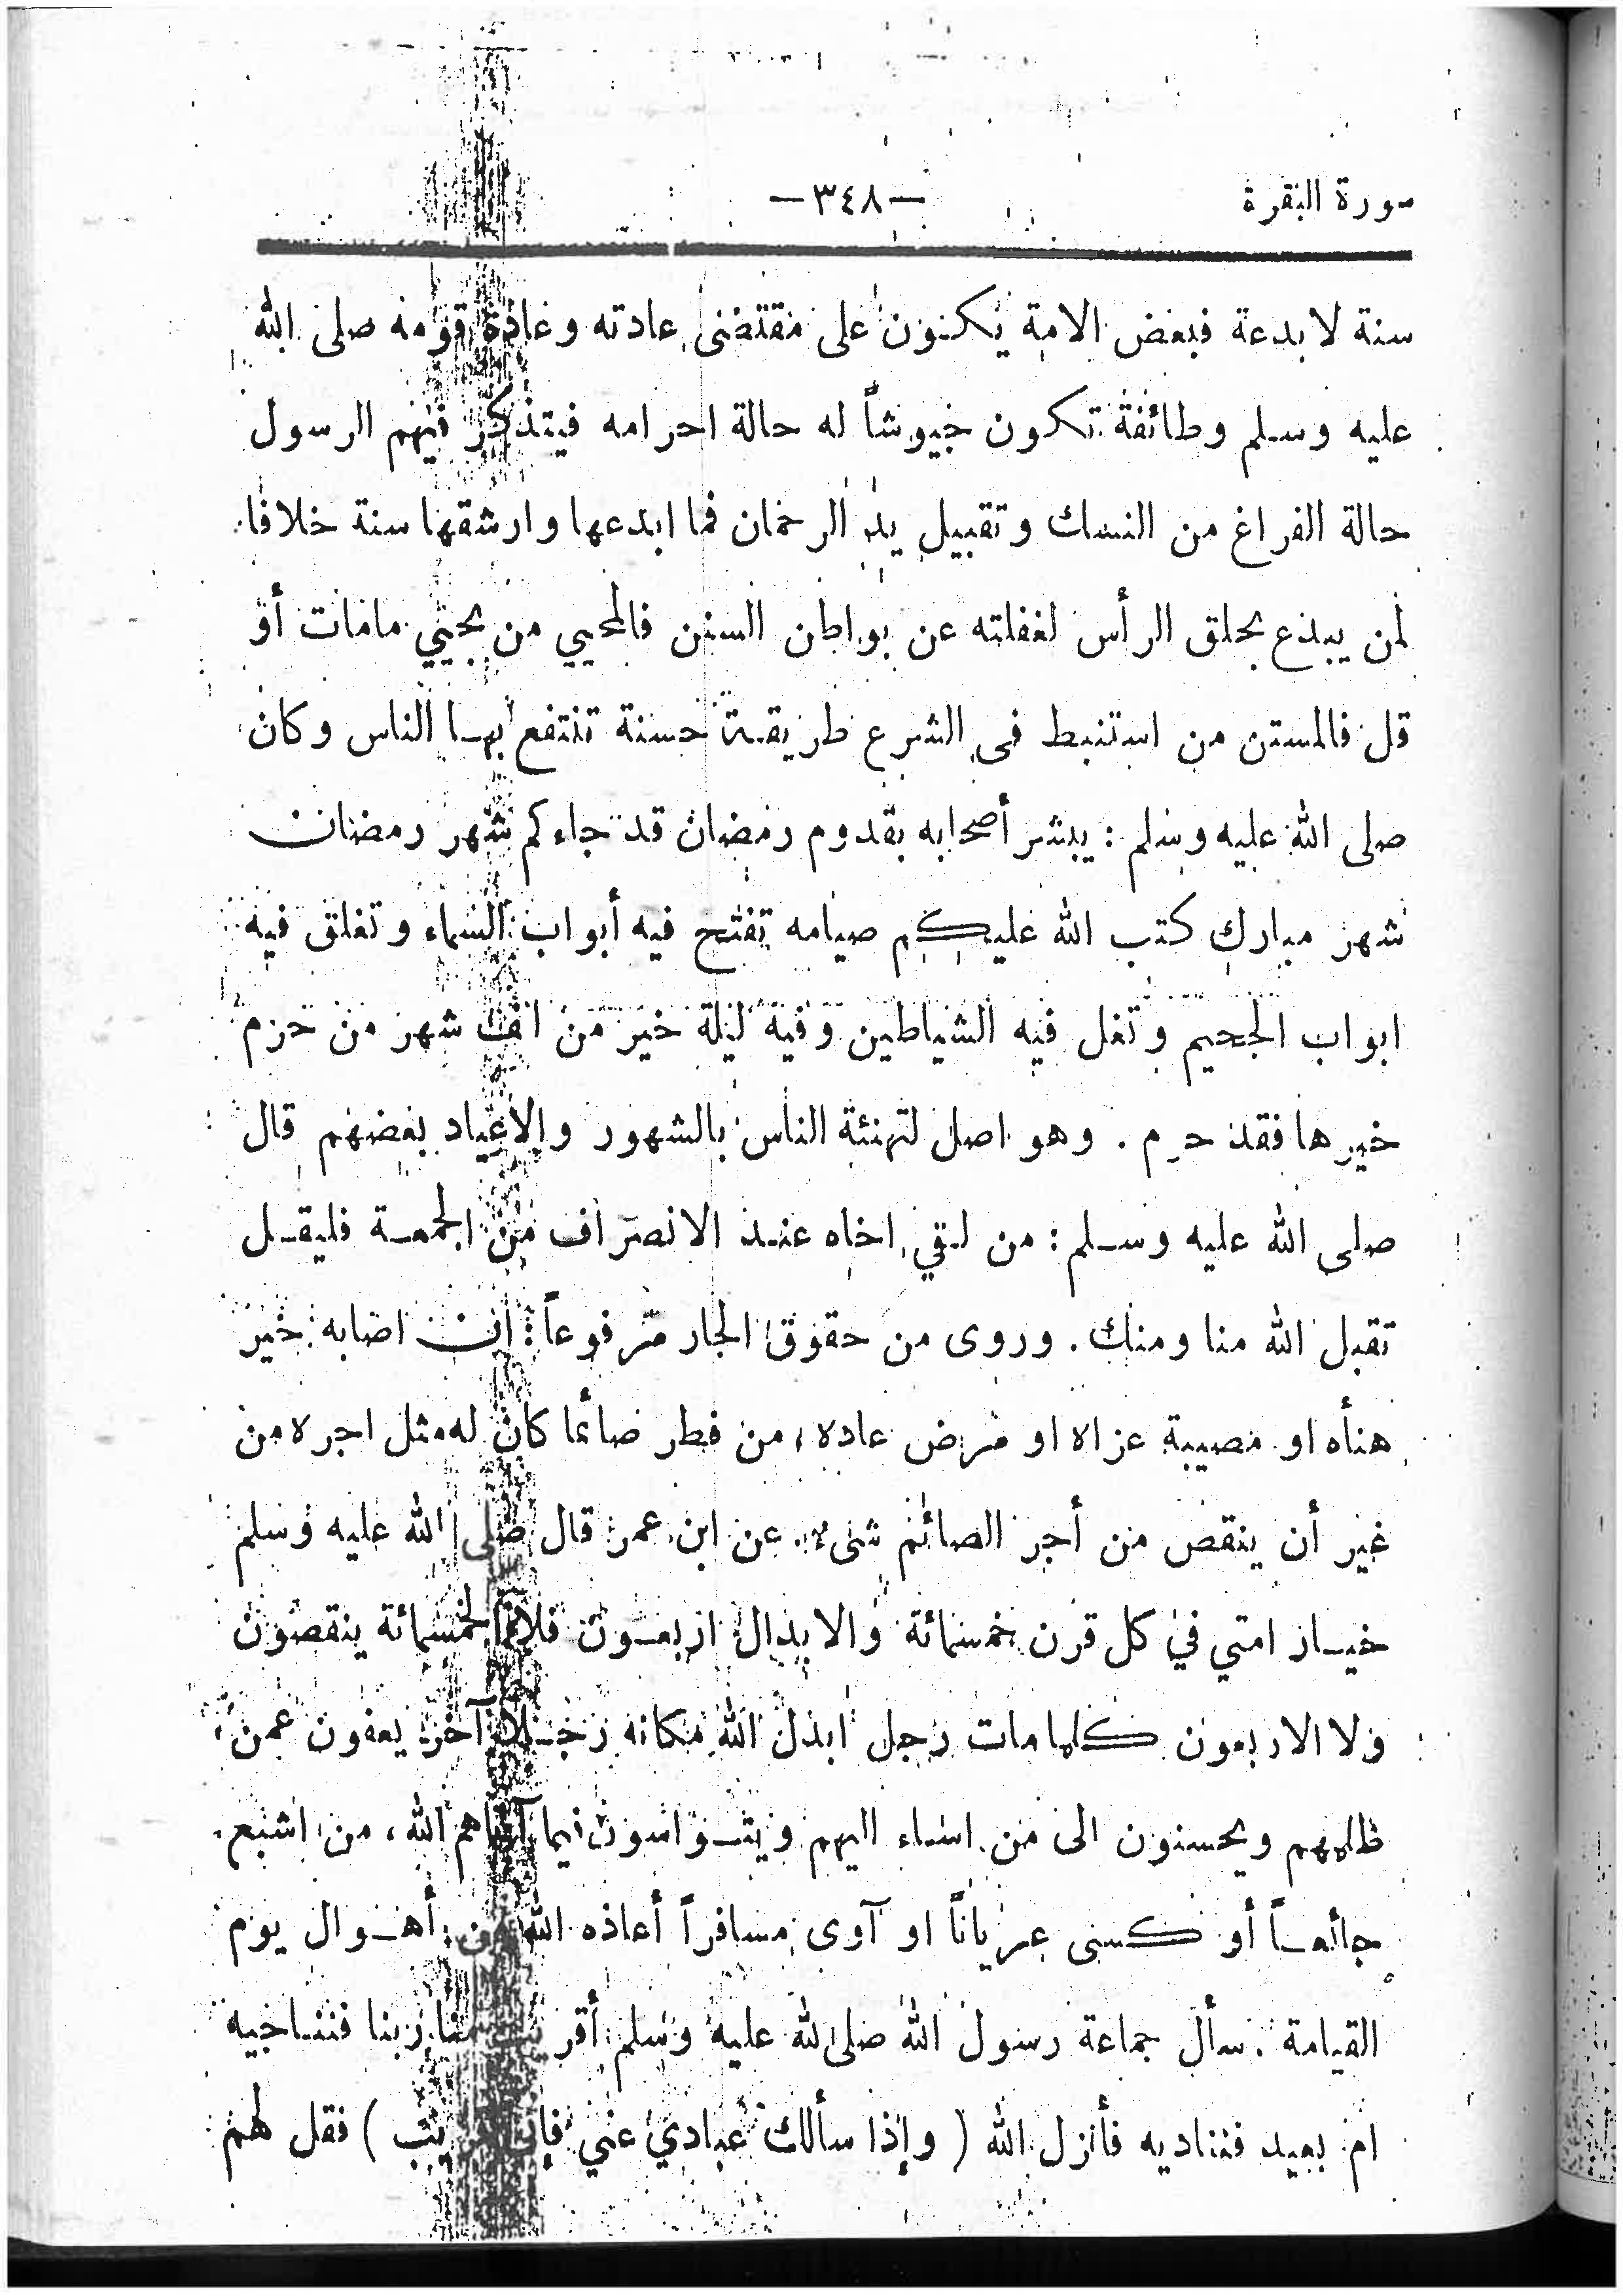 سورة البقرة
—٣٤٨—
سنة لا بدعة فبعض الامة يكنون على مقتضى عادته وعادة قومه صلى الله
عليه وسلم وطائفة تكون جيوشاً له حالة احرامه فيتذكر فيهم الرسول
حالة الفراغ من النسك وتقبيل يد الرحمان فما ابدعها وارشقها سنة خلافا
لمن يبدع بحلق الرأس لغفلته عن بواطن السنن فالمحيي من يحيي مامات أو
قل فالمستن من استنبط في الشرع طريقة حسنة تنتفع بها الناس وكان
صلى الله عليه وسلم : يبشر أصحابه بقدوم رمضان قد جاءكم شهر رمضان
شهر مبارك كتب الله عليكم صيامه تفتح فيه أبواب السماء وتغلق فيه
ابواب الجحيم وتغل فيه الشياطين وفيه ليلة خير من الف شهر من حرم
خيرها فقد حرم . وهو اصل لتهنئة الناس بالشهور والاعياد بعضهم قال
صلى الله عليه وسلم : من لقي اخاه عند الانصراف من الجمعة فليقل
تقبل الله منا ومنك . وروى من حقوق الجار مرفوعاً : ان اصابه خير
هنأه او مصيبة عزاه او مرض عاده ، من فطر صائما كان له مثل اجره من
غير أن ينقص من أجر الصائم شىء . عن ابن عمر قال صلى الله عليه وسلم
خيار امتي في كل قرن خمسمائة والابدال اربعون فلا الخمسمائة ينقصون
ولا الاربعون كلما مات رجل ابدل الله مكانه رجلا آخر يعفون عمن
ظلمهم ويحسنون الى من اساء اليهم ويتواسون فيما آتاهم الله ، من اشبع
جائعاً أو كسى عرياناً او آوى مسافراً أعاذه الله من أهوال يوم
القيامة . سأل جماعة رسول الله صلى لله عليه وسلم أقريب ربنا فنناجيه
ام بعيد فنناديه فأنزل الله ( وإذا سألك عبادي عني فإني قريب ) فقل لهم